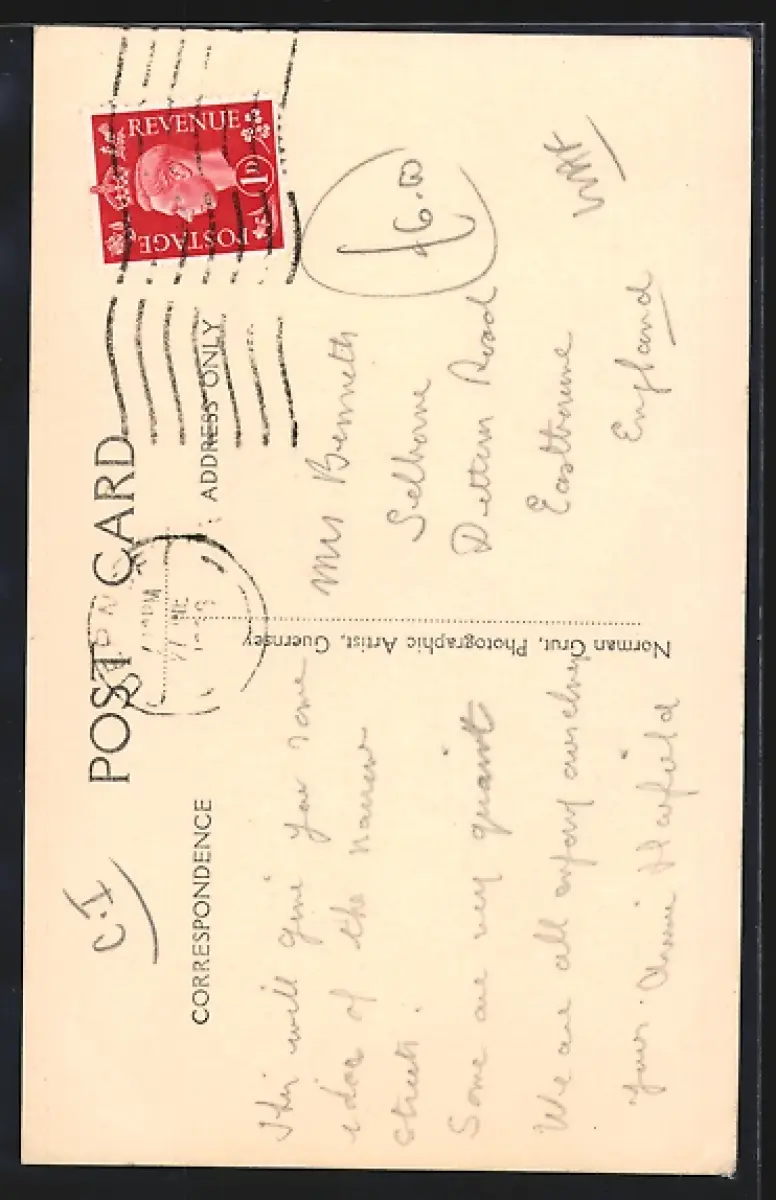 POST CARD
CORRESPONDENCE
ADDRESS ONLY
C.I
REVENUE
1D
POSTAGE
£6.00
This will give you some
idea of the narrow
streets.
Some are very quaint
We are all enjoying ourselves
yours. Annie
Mrs Bennett
Selborne
Road
Eastbourne
England
Norman Grut, Photographic Artist, Guernsey